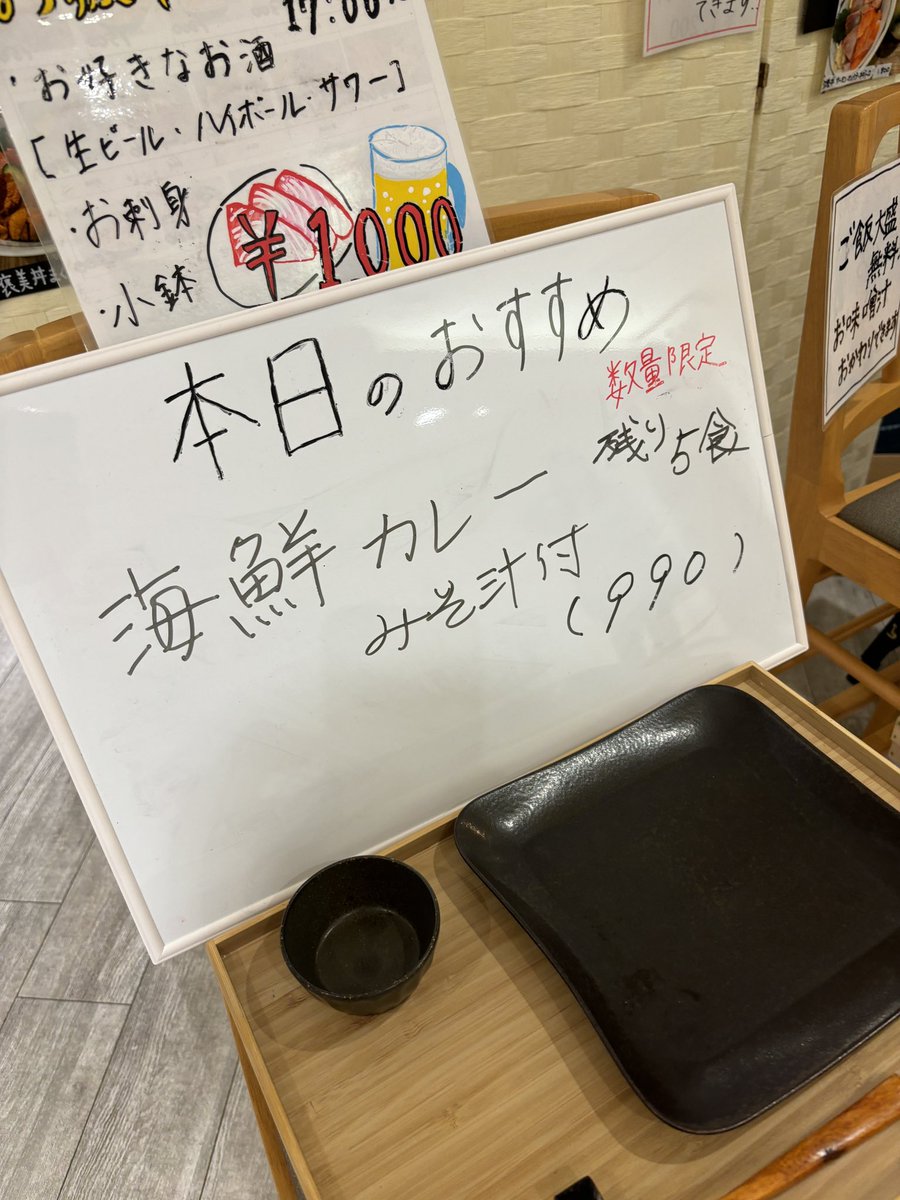 17:00
・お好きなお酒
[生ビール・ハイボール・サワー]
・お刺身
・小鉢
¥1000
できます!
ご飯大盛
無料
お味噌汁
おかわりできます
褒美丼
本日のおすすめ
数量限定
残り5食
海鮮カレー
みそ汁付
(990)